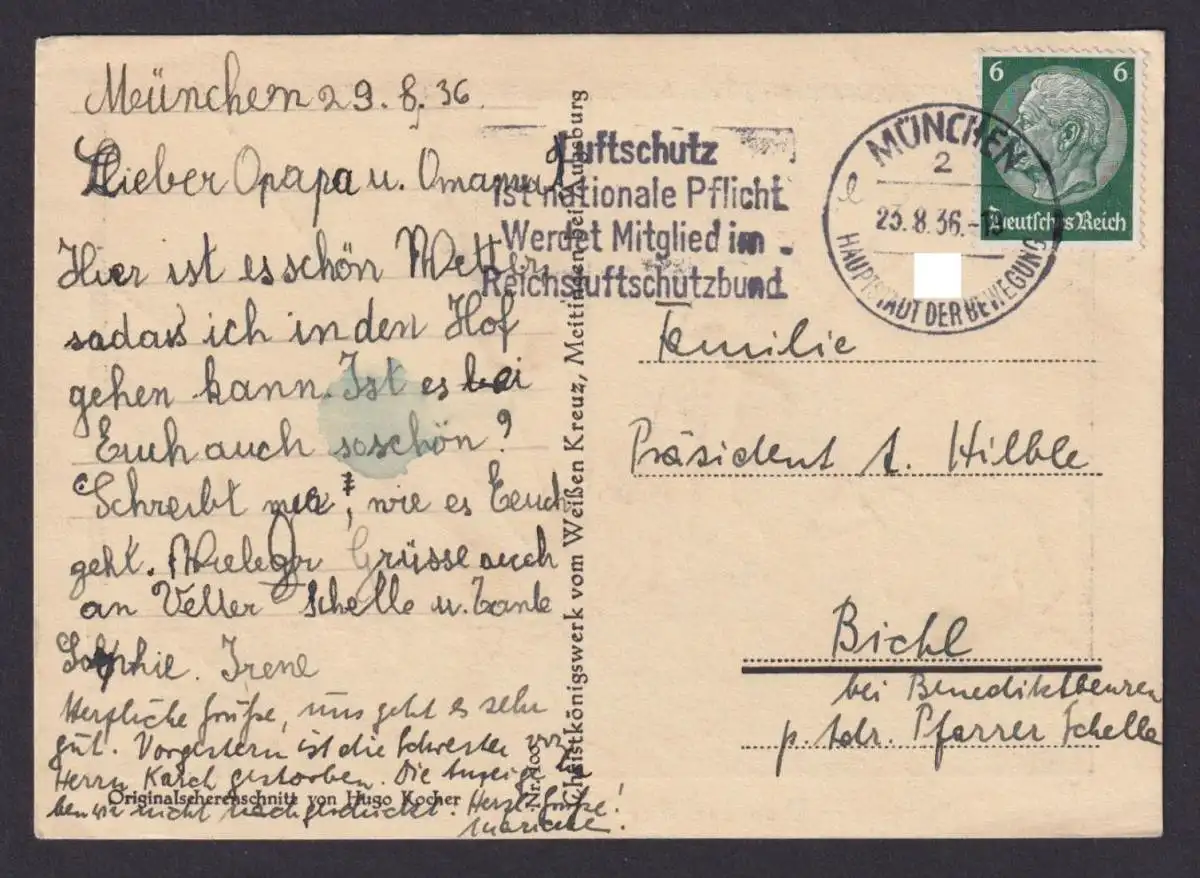 München 29.8.36.
Lieber Opapa u. Omama!
Hier ist es schön Wetter,
sodass ich in den Hof
gehen kann. Ist es bei
Euch auch so schön?
Schreibt mir, wie es Euch
geht. Viele Grüsse auch
an Vetter Schelle u. Tante
Sophie. Irene
Herzliche Grüße, uns geht es sehr
gut. Vorgestern ist die Schwester von
Herrn Karch gestorben. Die Anzeige ha
ben wir nicht nachgeschickt. Herzl. Grüße!
Originalscherenschnitt von Hugo Kocher
Nr. 100
Christkönigswerk vom Weißen Kreuz, Meitingen bei Augsburg
Luftschutz
ist nationale Pflicht
Werdet Mitglied im
Reichsluftschutzbund
MÜNCHEN
2
23.8.36.-
HAUPTSTADT DER BEWEGUNG
6 6
Deutsches Reich
Familie
Präsident A. Hilble
Bichl
bei Benediktbeuren
p. Adr. Pfarrer Schelle